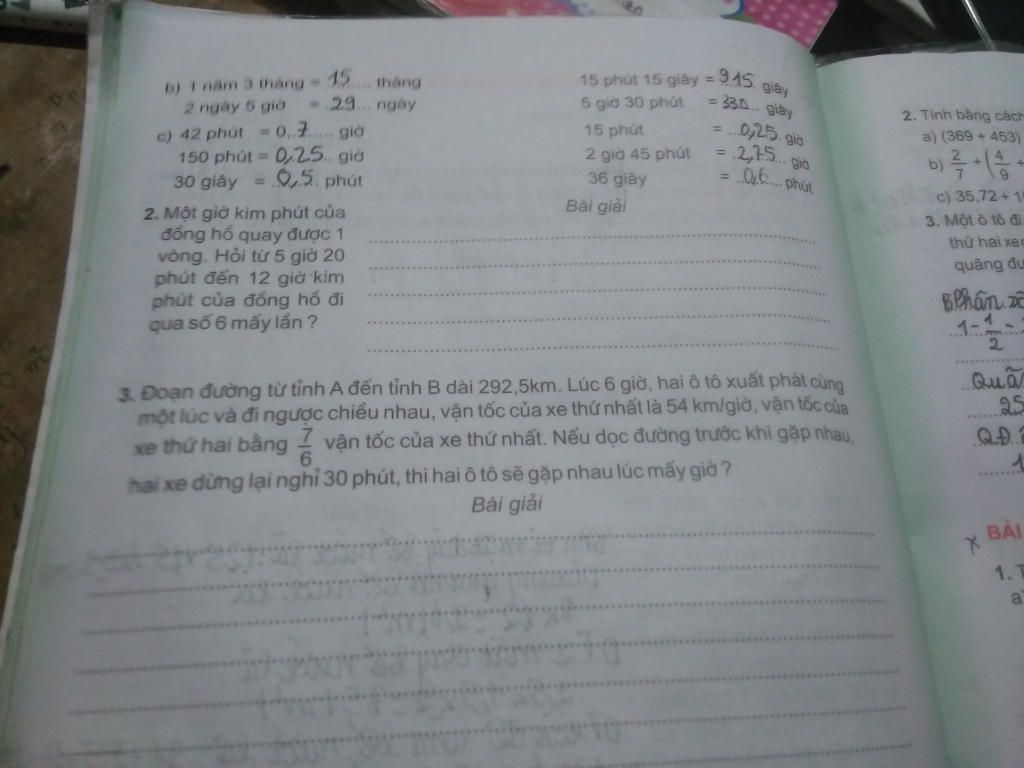 b) 1 năm 3 tháng = ..15.... tháng
2 ngày 5 giờ = .29... ngày
c) 42 phút = 0,.7..... giờ
150 phút = 0,25.. giờ
30 giây = .0,5. phút
15 phút 15 giây = 915. giây
5 giờ 30 phút = 330.. giây
15 phút = ...0,25. giờ
2 giờ 45 phút = .2,75... giờ
36 giây = ..0,6... phút
2. Một giờ kim phút của
đồng hồ quay được 1
vòng. Hỏi từ 5 giờ 20
phút đến 12 giờ kim
phút của đồng hồ đi
qua số 6 mấy lần ?
Bài giải
3. Đoạn đường từ tỉnh A đến tỉnh B dài 292,5km. Lúc 6 giờ, hai ô tô xuất phát cùng
một lúc và đi ngược chiều nhau, vận tốc của xe thứ nhất là 54 km/giờ, vận tốc của
xe thứ hai bằng 7/6 vận tốc của xe thứ nhất. Nếu dọc đường trước khi gặp nhau,
hai xe dừng lại nghỉ 30 phút, thì hai ô tô sẽ gặp nhau lúc mấy giờ ?
Bài giải
2. Tính bằng cách
a) (369 + 453)
b) 2/7 + (4/9 +
c) 35,72 + 1
3. Một ô tô đi
thứ hai xe
quãng đư
Phân số
1 - 1/2 =
Quã
25
Q.Đ
1
BÀI
1. T
a)